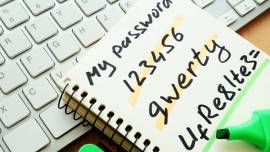 My password
123456
qwerty
UfRe8Ite3s